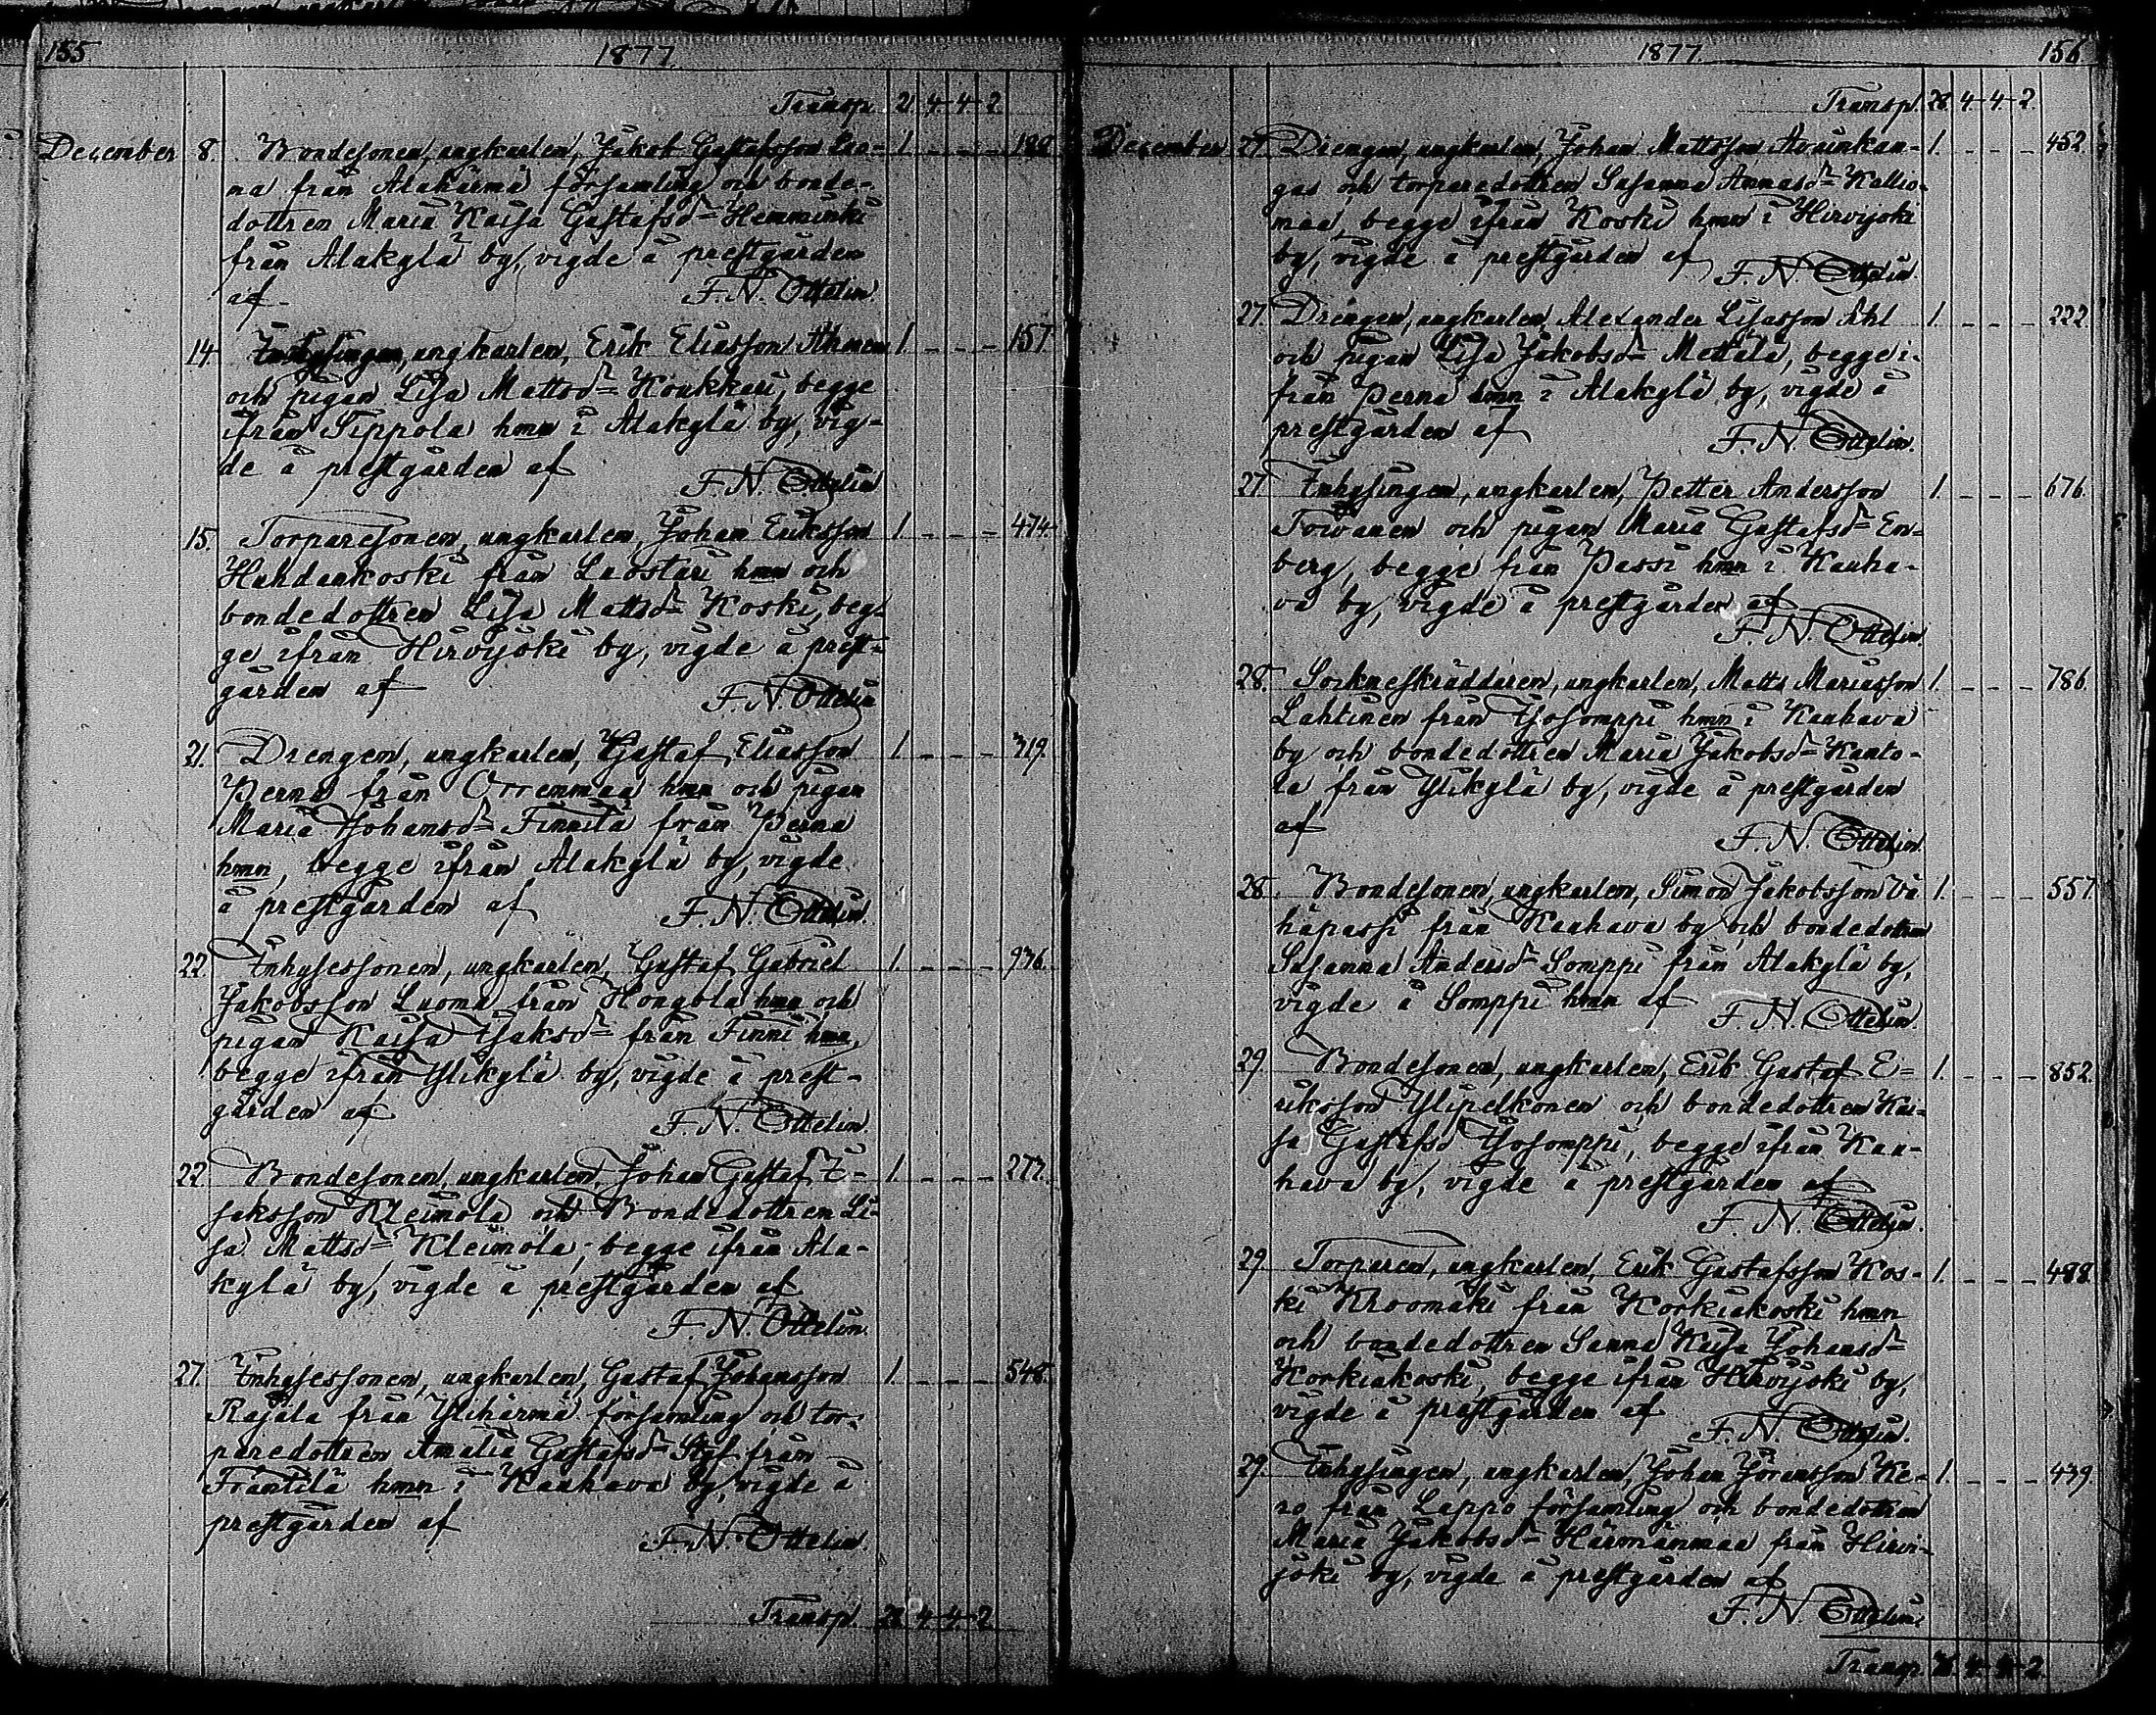 155 1877.
Transp. 21. 4. 4. 2.
December 8. Bondesonen, ungkarlen, Jakob Gustafsson 1. - - -
na från Alahärmä församling och bonde-
dottren Maria Kaisa Gustafsd= Hemminki
från Alakylä by, vigde å prestgården
af F. N. Ottelin.
14. Inhysingen, ungkarlen, Erik Eliasson 1. - - - 157.
och pigan Lisa Mattsd= Koukkari, begge
ifrån Tippola hmn i Alakylä by, vig-
de å prestgården af
F. N. Ottelin
15. Torparesonen, ungkarlen, Johan Eriksson 1. - - - 474.
Huhdankoski från Luostari hmn och
bondedottren Lisa Mattsd= Koski, beg-
ge ifrån Hirvijoki by, vigde å prest-
gården af F. N. Ottelin
21. Drengen, ungkarlen, Gustaf Eliasson 1. - - - 319.
Perna från Orrenmaa hmn och pigan
Maria Johansd= Finnilä från Perna
hmn, begge ifrån Alakylä by, vigde
å prestgården af F. N. Ottelin.
22. Inhysessonen, ungkarlen, Gustaf Gabriel 1. - - - 936.
Jakobsson Luoma från Hongola hmn och
pigan Kaisa Isaksd= från Finni hmn,
begge ifrån Ylikylä by, vigde å prest-
gården af F. N. Ottelin.
22. Bondesonen, ungkarlen, Johan Gustaf I- 1. - - - 277.
saksson Kleimola och Bondedottren Li-
sa Mattsd= Kleimola, begge ifrån Ala-
kylä by, vigde å prestgården af
F. N. Ottelin.
27. Inhysessonen, ungkarlen, Gustaf Johansson 1. - - - 548.
Rajala från Ylihärmä församling och tor-
paredottren Amalia Gustafsd= Styf från
Frantilä hmn i Kauhava by, vigde å
prestgården af F. N. Ottelin
Transp. 28. 4. 4. 2.
1877. 156
Transp. 28. 4. 4. 2.
December 27. Drengen, ungkarlen, Johan Mattsson Avunkan- 1. - - - 452.
gas och torparedottren Susanna Annasd= Kallio-
maa, begge ifrån Koski hmn i Hirvijoki
by, vigde å prestgården af F. N. Ottelin.
27. Drengen, ungkarlen, Alexander Lisasson Ahl 1. - - - 222.
och pigan Lisa Jakobsd= Mattala, begge i-
från Perna hmn i Alakylä by, vigde å
prestgården af F. N. Ottelin.
27 Inhysingen, ungkarlen, Petter Andersson 1. - - - 676.
Toivanen och pigan Maria Gustafsd= En-
berg, begge från Passi hmn i Kauha-
va by, vigde å prestgården af
F. N. Ottelin.
28. Sockneskräddaren, ungkarlen, Matts Mariasson 1. - - - 786.
Lahtinen från Isosomppi hmn i Kauhava
by och bondedottren Maria Jakobsd= Kanto-
la från Ylikylä by, vigde å prestgården
af F. N. Ottelin.
28. Bondesonen, ungkarlen, Simon Jakobsson Vä 1. - - - 557.
häpassi från Kauhava by och bondedottren
Susanna Andersd= Somppi från Alakylä by,
vigde å Somppi hmn af F. N. Ottelin.
29. Bondesonen, ungkarlen, Erik Gustaf E= 1. - - - 852.
riksson Ylipelkonen och bondedottren Kai-
sa Gustafsd Isosomppi, begge ifrån Kau-
hava by, vigde å prestgården af
F. N. Ottelin.
29. Torparen, ungkarlen, Erik Gustafsson Kos- 1. - - - 488.
ki Kroomäki från Korkiakoski hmn
och bondedottren Sanna Kaisa Johansd=
Korkiakoski, begge ifrån Hirvijoki by,
vigde å prestgården af F. N. Ottelin.
29. Inhysingen, ungkarlen, Johan Göransson Ke- 1. - - - 439.
ro från Lappo församling och bondedottren
Maria Jakobsd= Härmänmaa från Hirvi-
joki by, vigde å prestgården af
F. N. Ottelin.
Transp. 4. 4. 2.